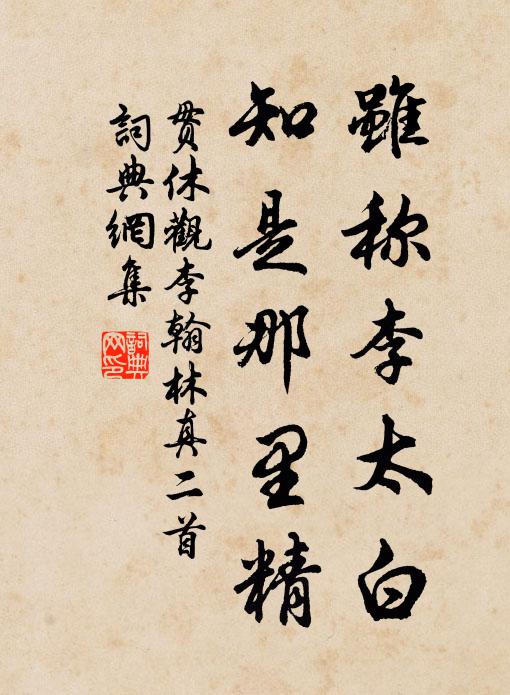 雖称李太白
知是那里精
贯休觀李翰林真二首
詞典網集
詞典網印